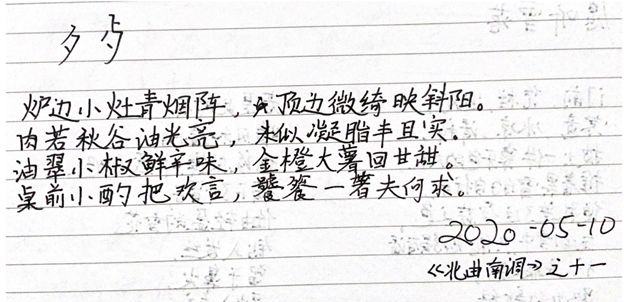 夕步
炉边小灶青烟阵，顶边微绮映斜阳。
肉若秋谷油光亮，米似凝脂丰且实。
油翠小椒鲜辛味，金橙大薯回甘甜。
桌前小酌把欢言，饕餮一箸夫何求。
2020-05-10
《北曲南调》之十一